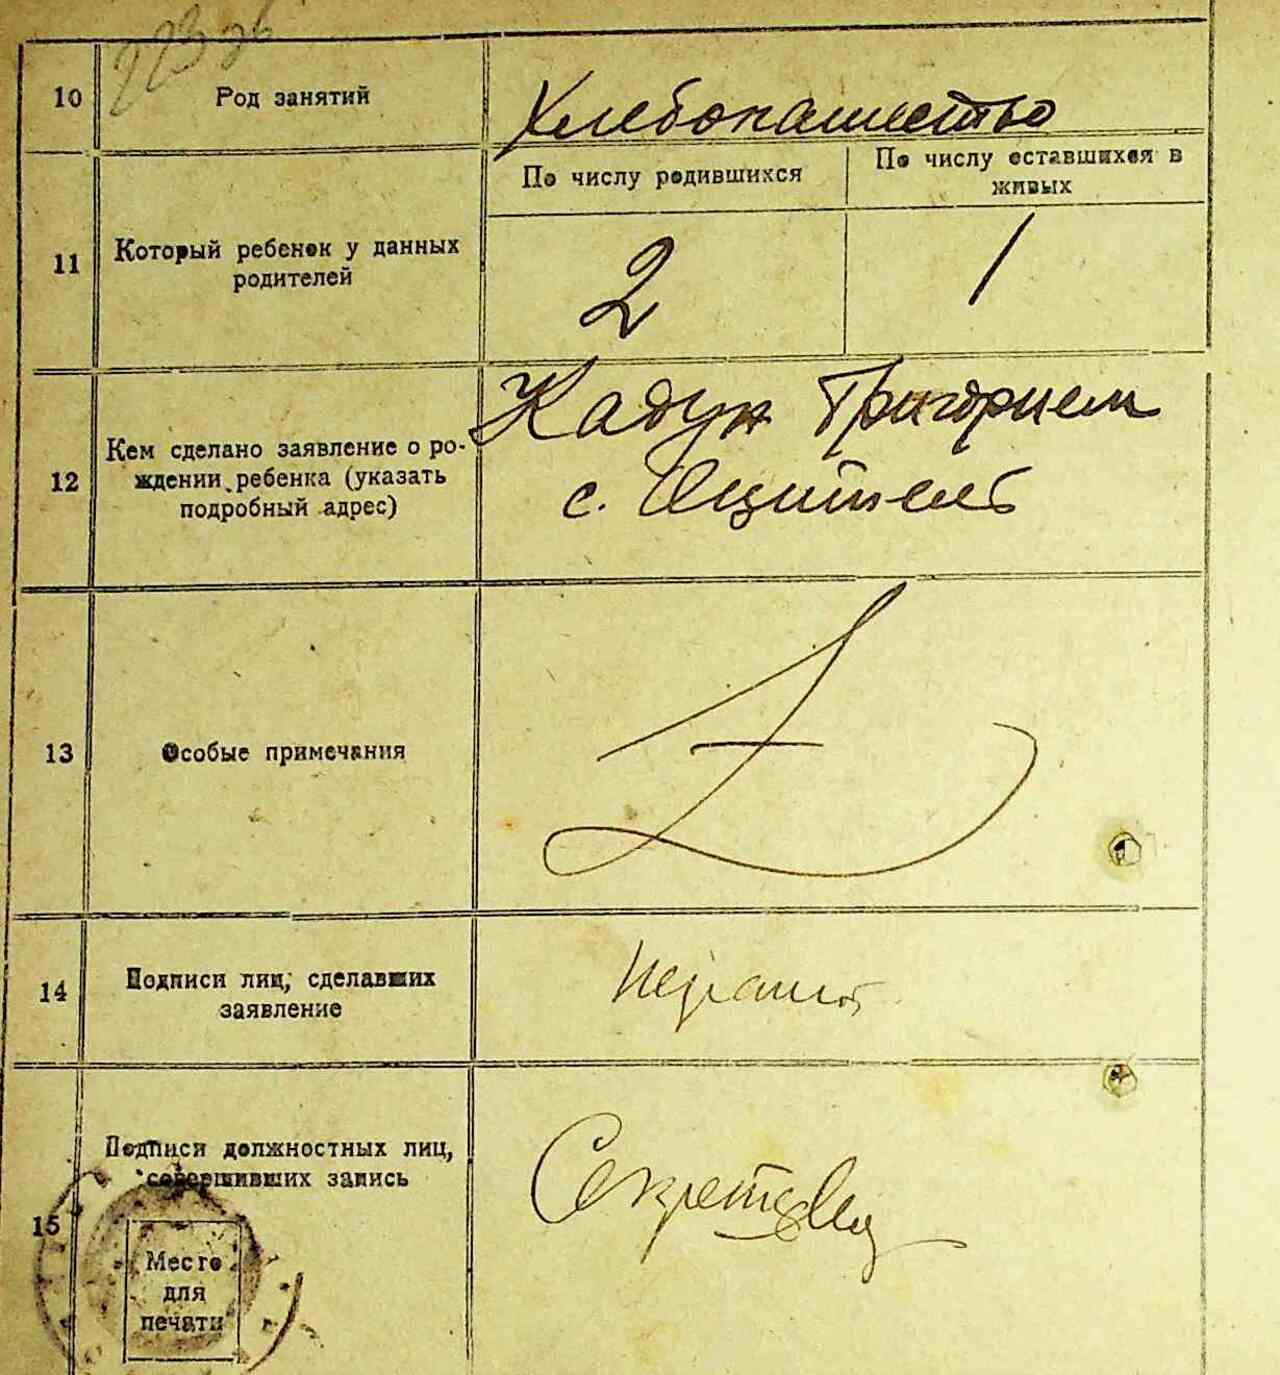 10
Род занятий
Хлебопашество
11
Который ребенок у данных
родителей
По числу родившихся
По числу оставшихся в
живых
2
1
12
Кем сделано заявление о ро-
ждении ребенка (указать
подробный адрес)
Кадун Григорием
с.
13
Особые примечания
14
Подписи лиц, сделавших
заявление
Неграмот
15
Подписи должностных лиц,
совершивших запись
Место
для
печати